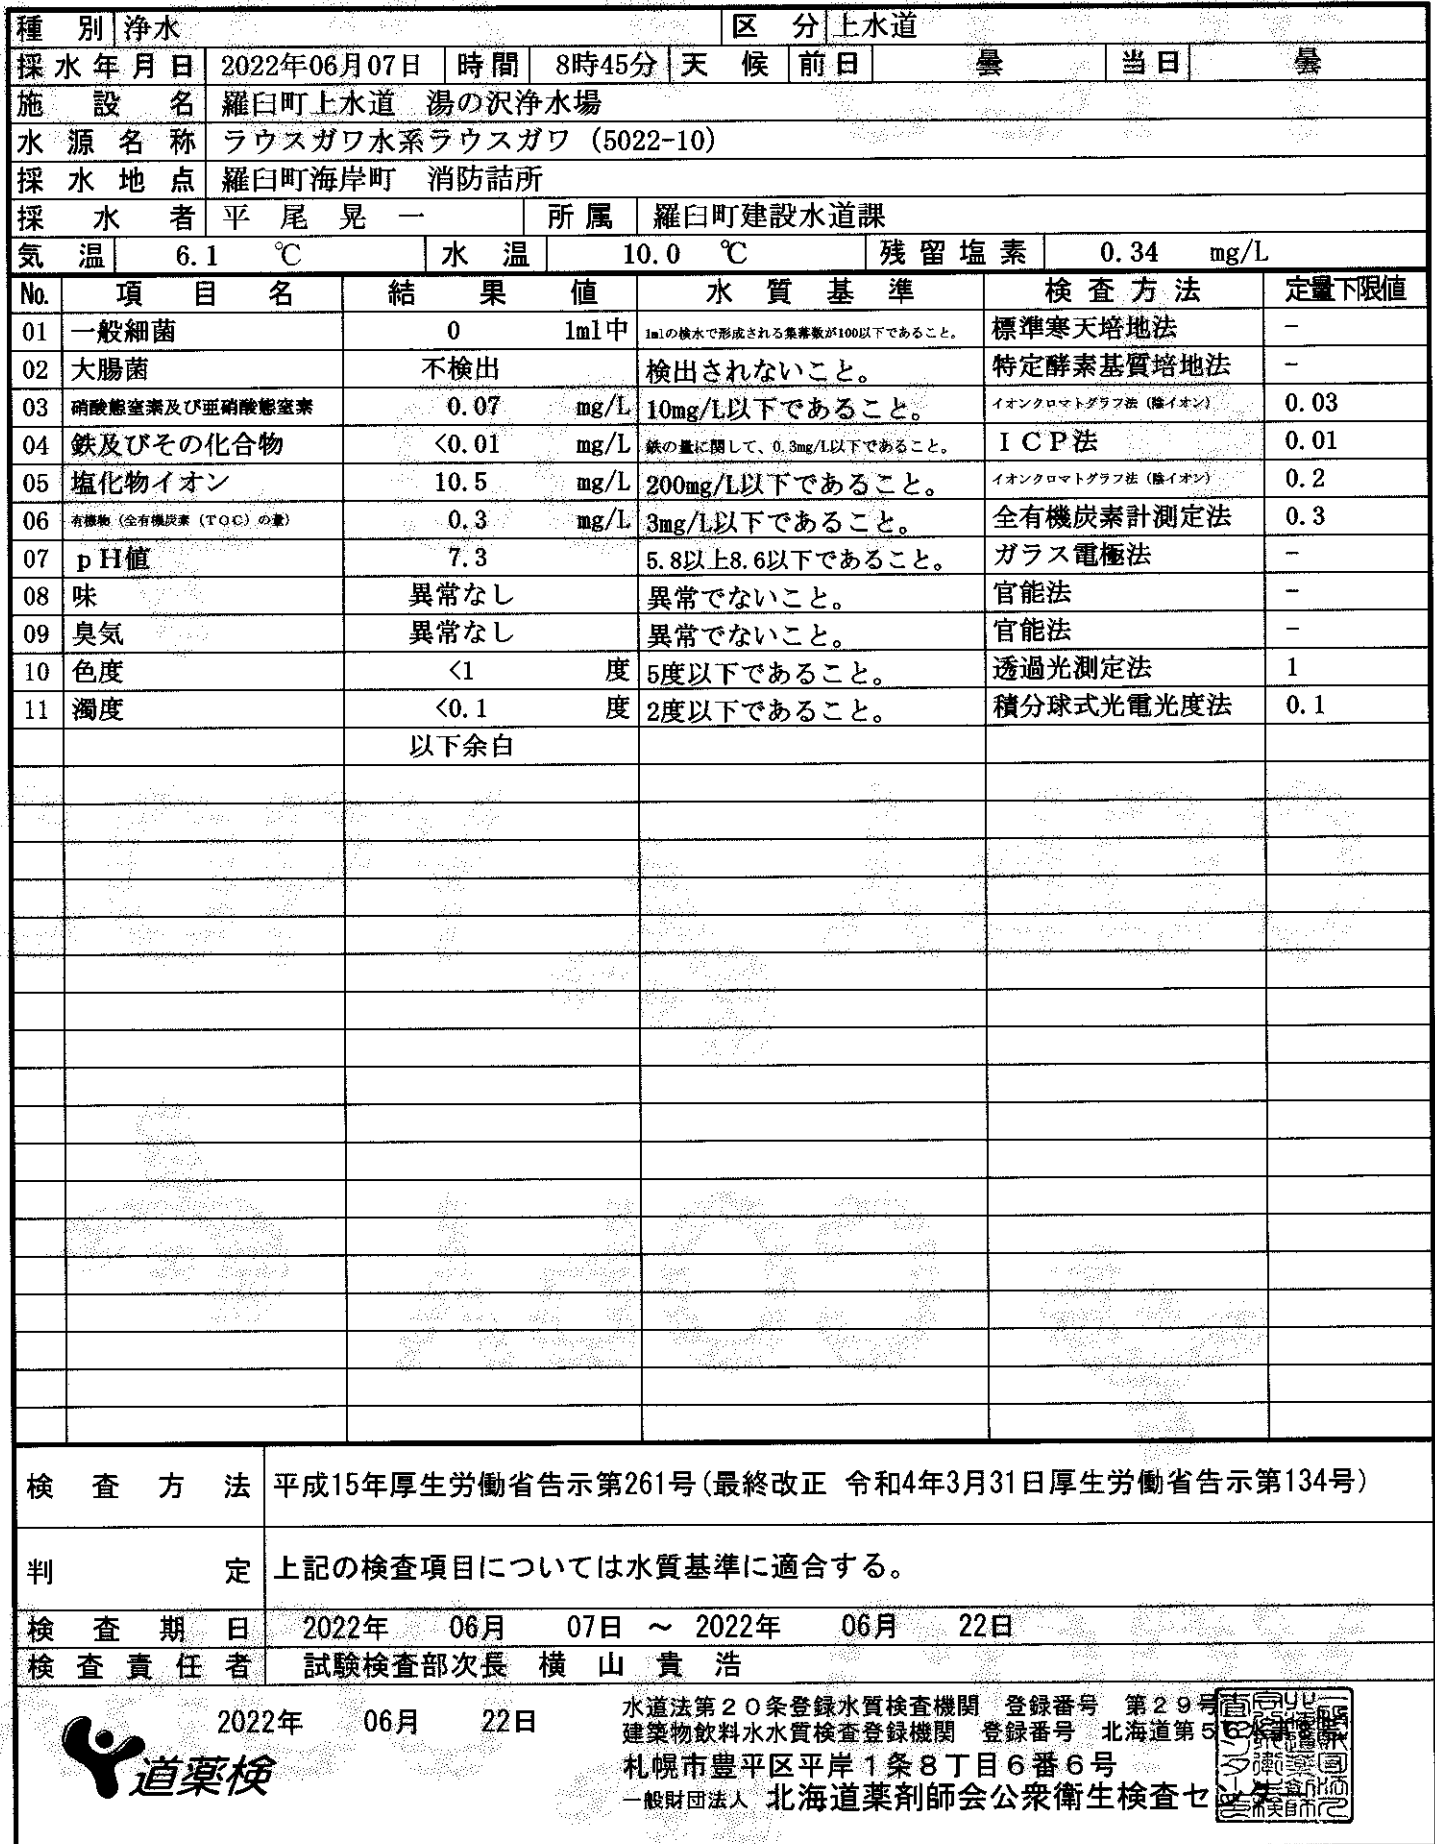 種別 浄水 区分 上水道
採水年月日 2022年06月07日 時間 8時45分 天候 前日 曇 当日 曇
施設名 羅臼町上水道 湯の沢浄水場
水源名称 ラウスガワ水系ラウスガワ (5022-10)
採水地点 羅臼町海岸町 消防詰所
採水者 平尾晃一 所属 羅臼町建設水道課
気温 6.1 ℃ 水温 10.0 ℃ 残留塩素 0.34 mg/L
No. 項目名 結果値 水質基準 検査方法 定量下限値
01 一般細菌 0 1ml中 1mlの検水で形成される集落数が100以下であること。 標準寒天培地法 -
02 大腸菌 不検出 検出されないこと。 特定酵素基質培地法 -
03 硝酸態窒素及び亜硝酸態窒素 0.07 mg/L 10mg/L以下であること。 イオンクロマトグラフ法（陰イオン） 0.03
04 鉄及びその化合物 <0.01 mg/L 鉄の量に関して、0.3mg/L以下であること。 ICP法 0.01
05 塩化物イオン 10.5 mg/L 200mg/L以下であること。 イオンクロマトグラフ法（陰イオン） 0.2
06 有機物（全有機炭素（TOC）の量） 0.3 mg/L 3mg/L以下であること。 全有機炭素計測定法 0.3
07 pH値 7.3 5.8以上8.6以下であること。 ガラス電極法 -
08 味 異常なし 異常でないこと。 官能法 -
09 臭気 異常なし 異常でないこと。 官能法 -
10 色度 <1 度 5度以下であること。 透過光測定法 1
11 濁度 <0.1 度 2度以下であること。 積分球式光電光度法 0.1
以下余白
検査方法 平成15年厚生労働省告示第261号(最終改正 令和4年3月31日厚生労働省告示第134号)
判定 上記の検査項目については水質基準に適合する。
検査期日 2022年 06月 07日 ～ 2022年 06月 22日
検査責任者 試験検査部次長 横山貴浩
2022年 06月 22日
水道法第２０条登録水質検査機関 登録番号 第２９号
建築物飲料水水質検査登録機関 登録番号 北海道第５
札幌市豊平区平岸１条８丁目６番６号
一般財団法人 北海道薬剤師会公衆衛生検査センター
道薬検